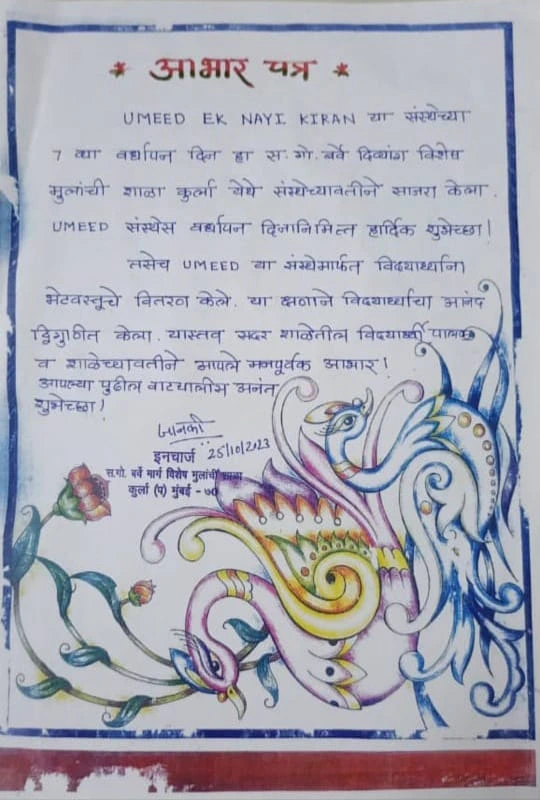 * आभार पत्र *
UMEED EK NAYI KIRAN या संस्थेच्या
7 व्या वर्धापन दिन हा स. गो. बर्वे दिव्यांग विशेष
मुलांची शाळा कुर्ला येथे संस्थेच्यावतीने साजरा केला.
UMEED संस्थेस वर्धापन दिनानिमित्त हार्दिक शुभेच्छा!
तसेच UMEED या संस्थेमार्फत विद्यार्थ्यांना
भेटवस्तूचे वितरण केले. या क्षणाने विद्यार्थ्यांचा आनंद
द्विगुणीत केला. यास्तव सदर शाळेतील विद्यार्थी पालक
व शाळेच्यावतीने आपले मनपूर्वक आभार!
आपल्या पुढील वाटचालीस अनंत
शुभेच्छा!
जानकी
इनचार्ज 25/10/2023
स.गो. बर्वे मार्ग विशेष मुलांची शाळा
कुर्ला (प) मुंबई - ७०